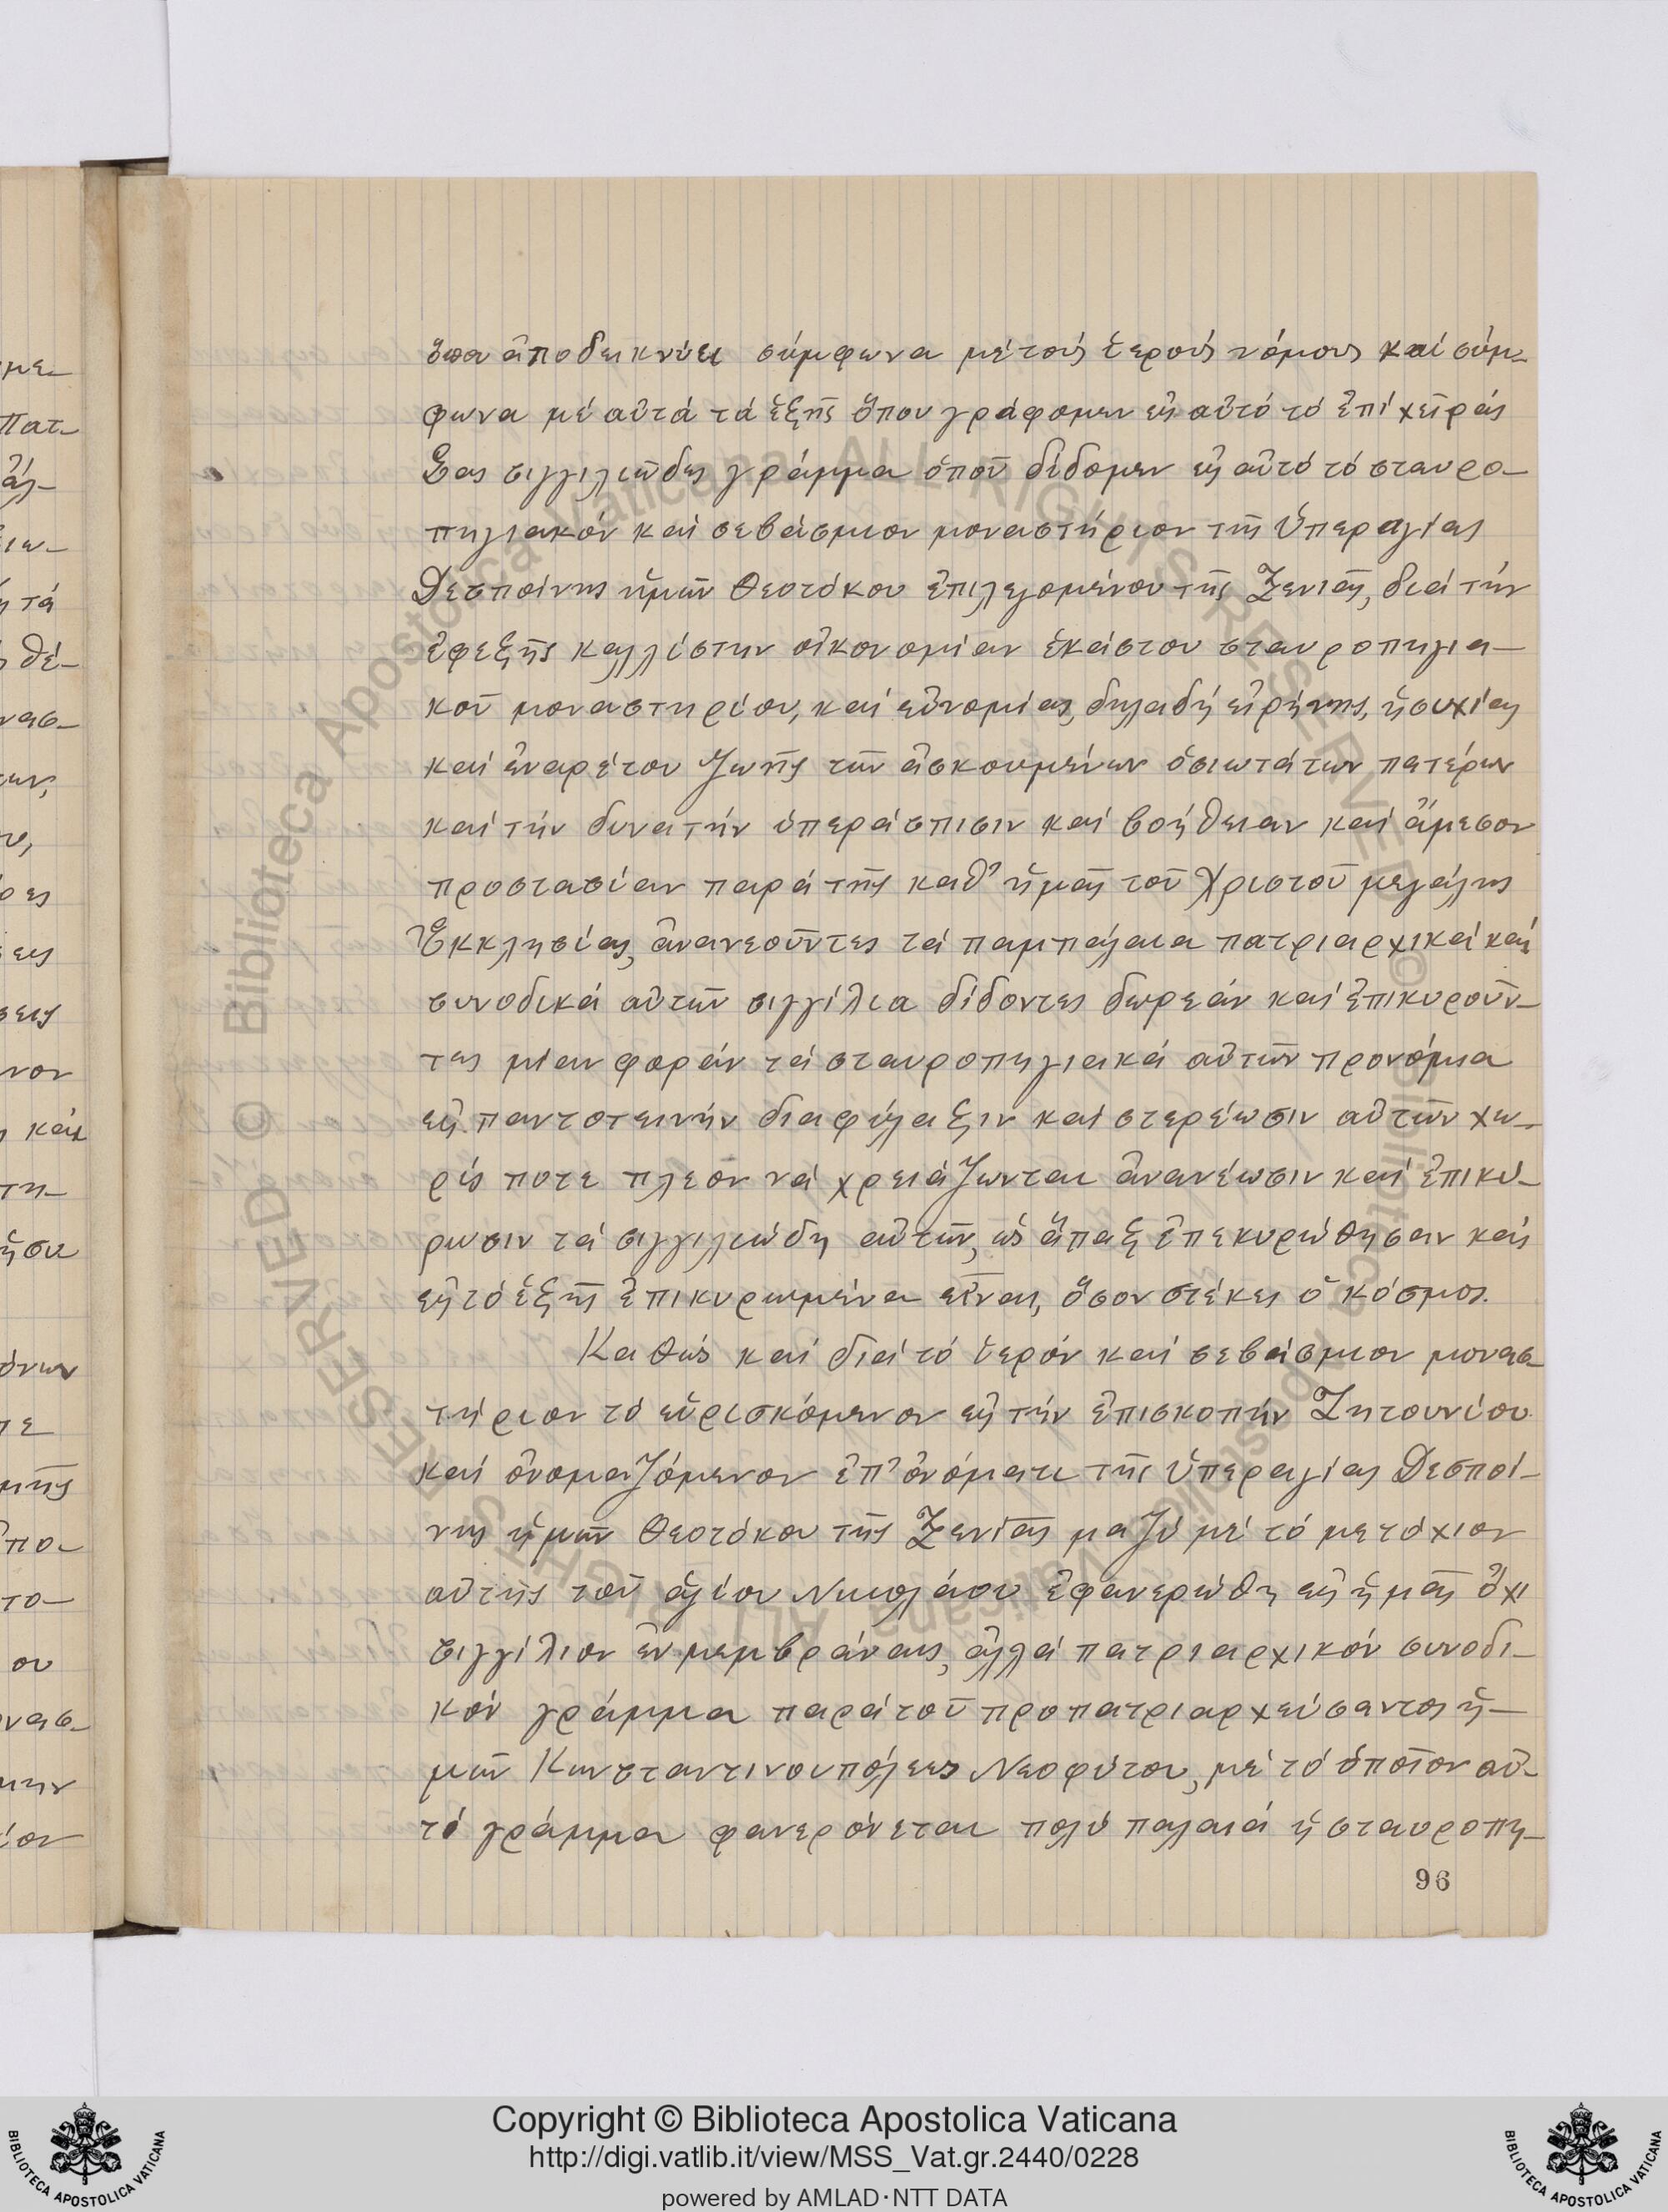 ὅπου ἀποδεικνύει σύμφωνα μέ τούς ἱερούς νόμους καί σύμ-
φωνα μέ αὐτά τά ἑξῆς ὅπου γράφομεν εἰς αὐτό τό ἐπί χεῖρας
Σας σιγγιλιῶδες γράμμα ὁποῦ δίδομεν εἰς αὐτό τό σταυρο-
πηγιακόν καί σεβάσμιον μοναστήριον τῆς Ὑπεραγίας
Δεσποίνης ἡμῶν Θεοτόκου ἐπιλεγομένου τῆς Ξενιᾶς, διά τήν
ἐφεξῆς καλλίστην οἰκονομίαν ἑκάστου σταυροπηγια-
κοῦ μοναστηρίου, καί εὐνομίας, δηλαδή εἰρήνης, ἡσυχίας
καί ἐναρέτου ζωῆς τῶν ἀσκουμένων ὁσιωτάτων πατέρων
καί τήν δυνατήν ὑπεράσπισιν καί βοήθειαν καί ἄμεσον
προστασίαν παρά τῆς καθ' ἡμᾶς τοῦ Χριστοῦ μεγάλης
Ἐκκλησίας, ἀνανεοῦντες τά παμπάλαια πατριαρχικά καί
συνοδικά αὐτῶν σιγγίλια δίδοντες δωρεάν καί ἐπικυροῦν-
τες μίαν φοράν τά σταυροπηγιακά αὐτῶν προνόμια
εἰς παντοτεινήν διαφύλαξιν καί στερέωσιν αὐτῶν χω-
ρίς ποτε πλέον νά χρειάζωνται ἀνανέωσιν καί ἐπικύ-
ρωσιν τά σιγγιλιώδη αὐτῶν, ὡς ἅπαξ ἐπεκυρώθησαν καί
εἰς τό ἑξῆς ἐπικυρωμένα εἶναι, ὅσον στέκει ὁ κόσμος.
Καθώς καί διά τό ἱερόν καί σεβάσμιον μονασ-
τήριον τό εὑρισκόμενον εἰς τήν ἐπισκοπήν Ζητουνίου
καί ὀνομαζόμενον ἐπ' ὀνόματι τῆς Ὑπεραγίας Δεσποί-
νης ἡμῶν Θεοτόκου τῆς Ξενιᾶς μαζύ μέ τό μετόχιον
αὐτῆς τοῦ ἁγίου Νικολάου ἐφανερώθη εἰς ἡμᾶς ὄχι
σιγγίλιον ἐν μεμβράναις, ἀλλά πατριαρχικόν συνοδι-
κόν γράμμα παρά τοῦ προπατριαρχεύσαντος ἡ-
μῶν Κωνσταντινουπόλεως Νεοφύτου, μέ τό ὁποῖον αὐ-
τό γράμμα φανερόνεται πολύ παλαιά ἡ σταυροπη-
96
Copyright © Biblioteca Apostolica Vaticana
http://digi.vatlib.it/view/MSS_Vat.gr.2440/0228
powered by AMLAD·NTT DATA